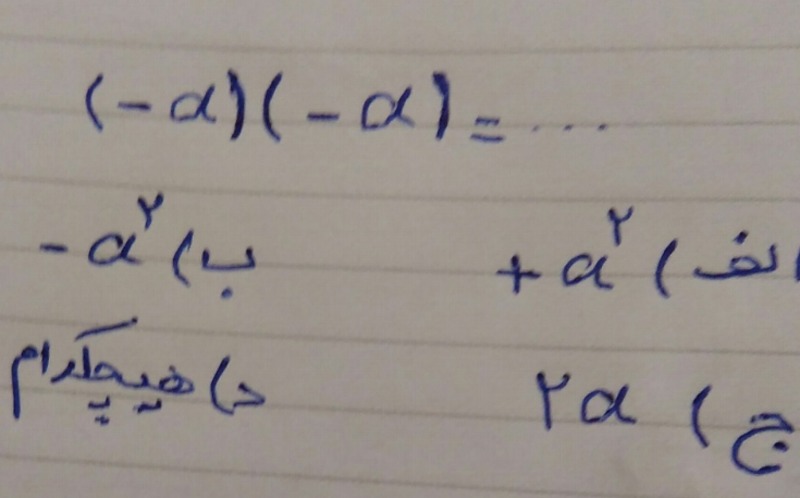 (-a)(-a) = ...
الف) +a^۲ ب) -a^۲
ج) ۲a د) هیچکدام